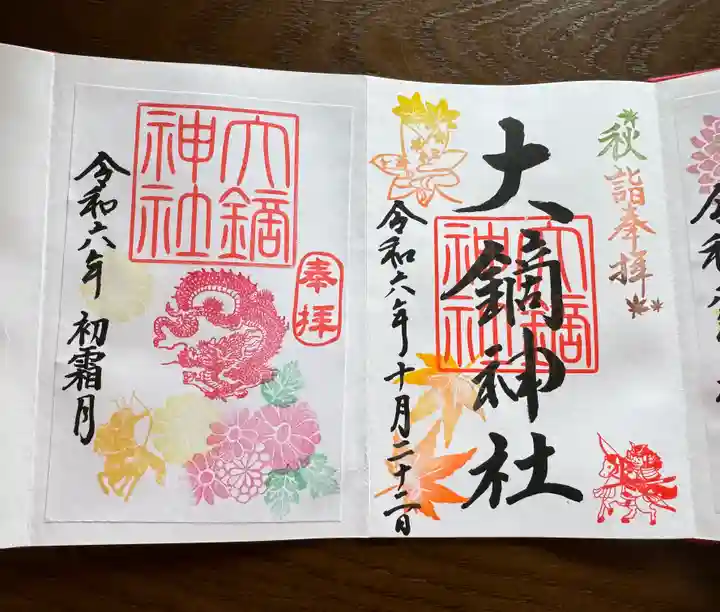 秋詣奉拝
大鏑神社
大鏑神社
令和六年十月二十二日
奉拝
大鏑神社
令和六年 初霜月